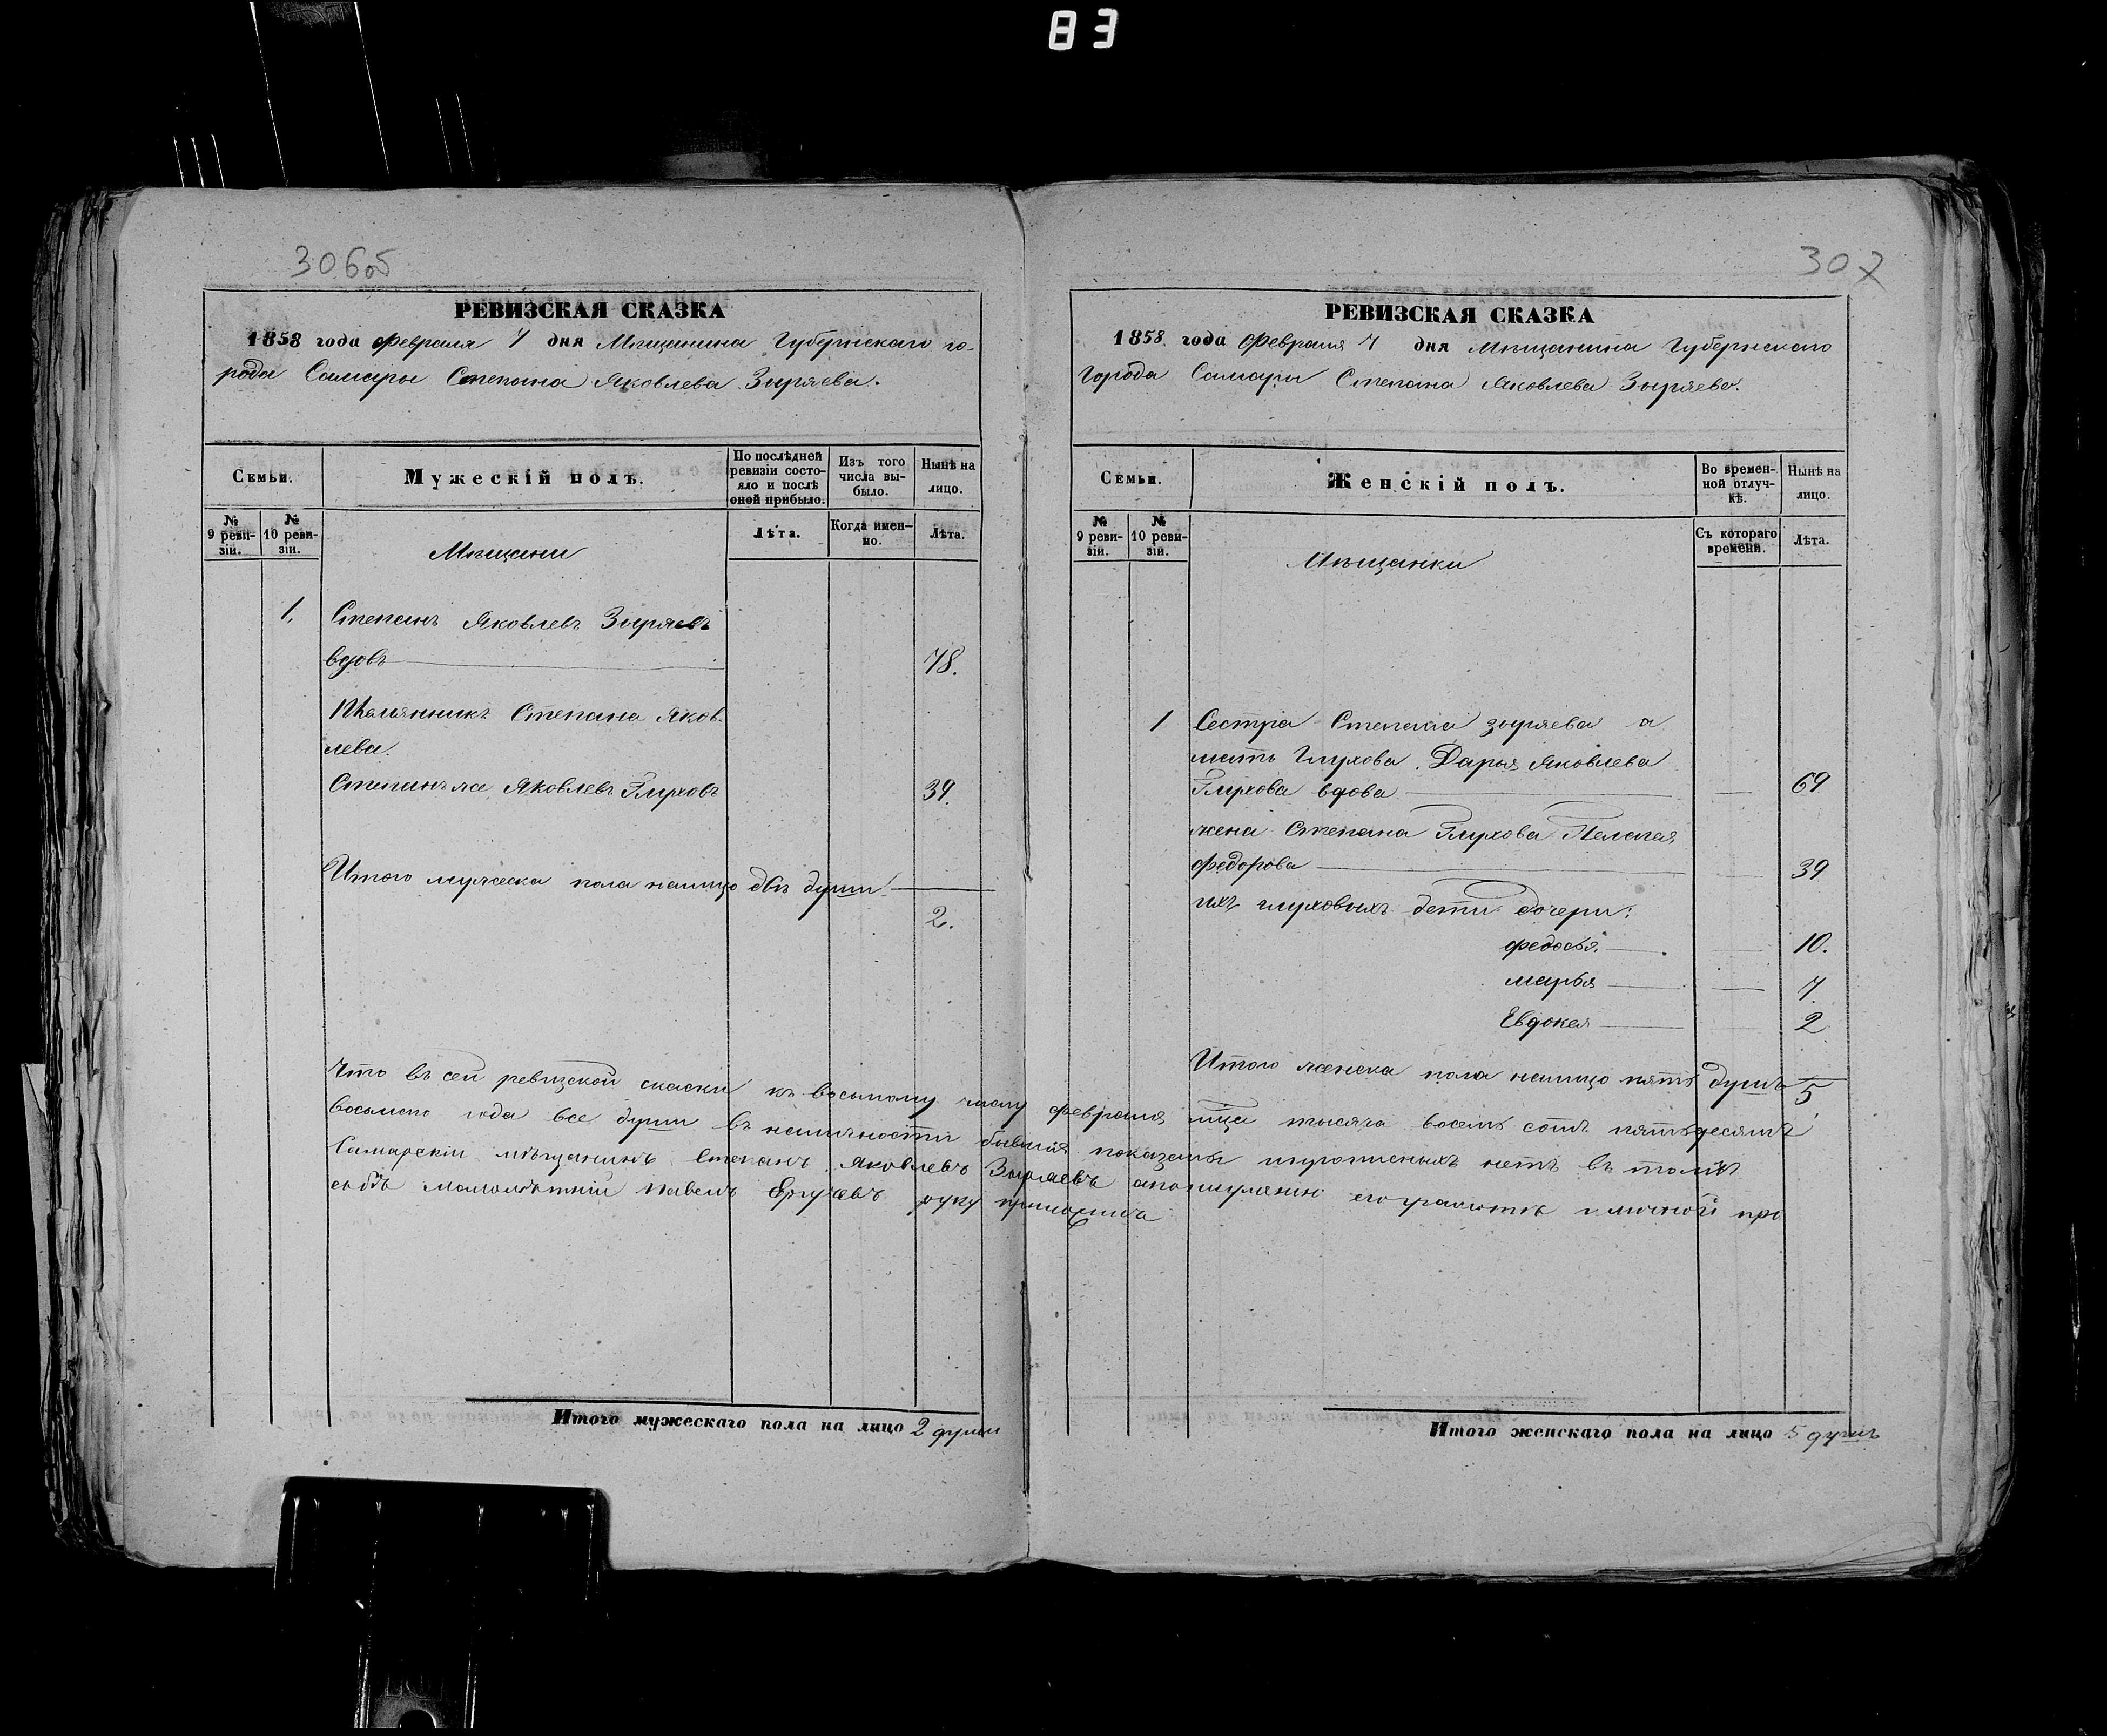 83
306об
РЕВИЗСКАЯ СКАЗКА
1858 года Февраля 7 дня Мѣщанина Губернскаго го-
рода Самары Степана Яковлева Зыряева.
Семьи.
Мужескій полъ.
По послѣдней ревизіи состо-
яло и послѣ оной прибыло.
Изъ того числа вы-
было.
Нынѣ на лицо.
№ 9 реви-
зіи.
№ 10 реви-
зіи.
Мѣщани
Лѣта.
Когда имен-
но.
Лѣта.
1. Степанъ Яковлевъ Зыряевъ
вдовъ 78.
Племянникъ Степана Яков-
лева.
Степанъ же Яковлевъ Глуховъ 39.
Итого мужеска пола налицо двѣ души
2.
Итого мужескаго пола на лицо 2 души
307
РЕВИЗСКАЯ СКАЗКА
1858 года Февраля 7 дня Мѣщанина Губернскаго
города Самары Степана Яковлева Зыряева.
Семьи.
Женскій полъ.
Во времен-
ной отлуч-
кѣ.
Нынѣ на лицо.
№ 9 реви-
зіи.
№ 10 реви-
зіи.
Мѣщанки
Съ котораго времени.
Лѣта.
1 Сестра Степана зыряева а
мать Глухова Дарья Яковлева
Глухова вдова 69
жена Степана Глухова Пелагея
федорова 39
ихъ глуховыхъ дети дочери:
федосья 10.
марья 7
Евдокея 2
Итого женска пола налицо пять душъ 5
Что въ сей ревизской скаски къ восьмому числу февраля тысяча восемь сотъ пятьдесятъ
восьмого года все души въ наличности бывшія показаны ипрописныхъ нетъ въ томъ
Самарскій мѣщанинъ Степанъ Яковлевъ Зыряевъ его грамотѣ личной про
сьбѣ Павелъ руку приложилъ
Итого женскаго пола на лицо 5 душъ